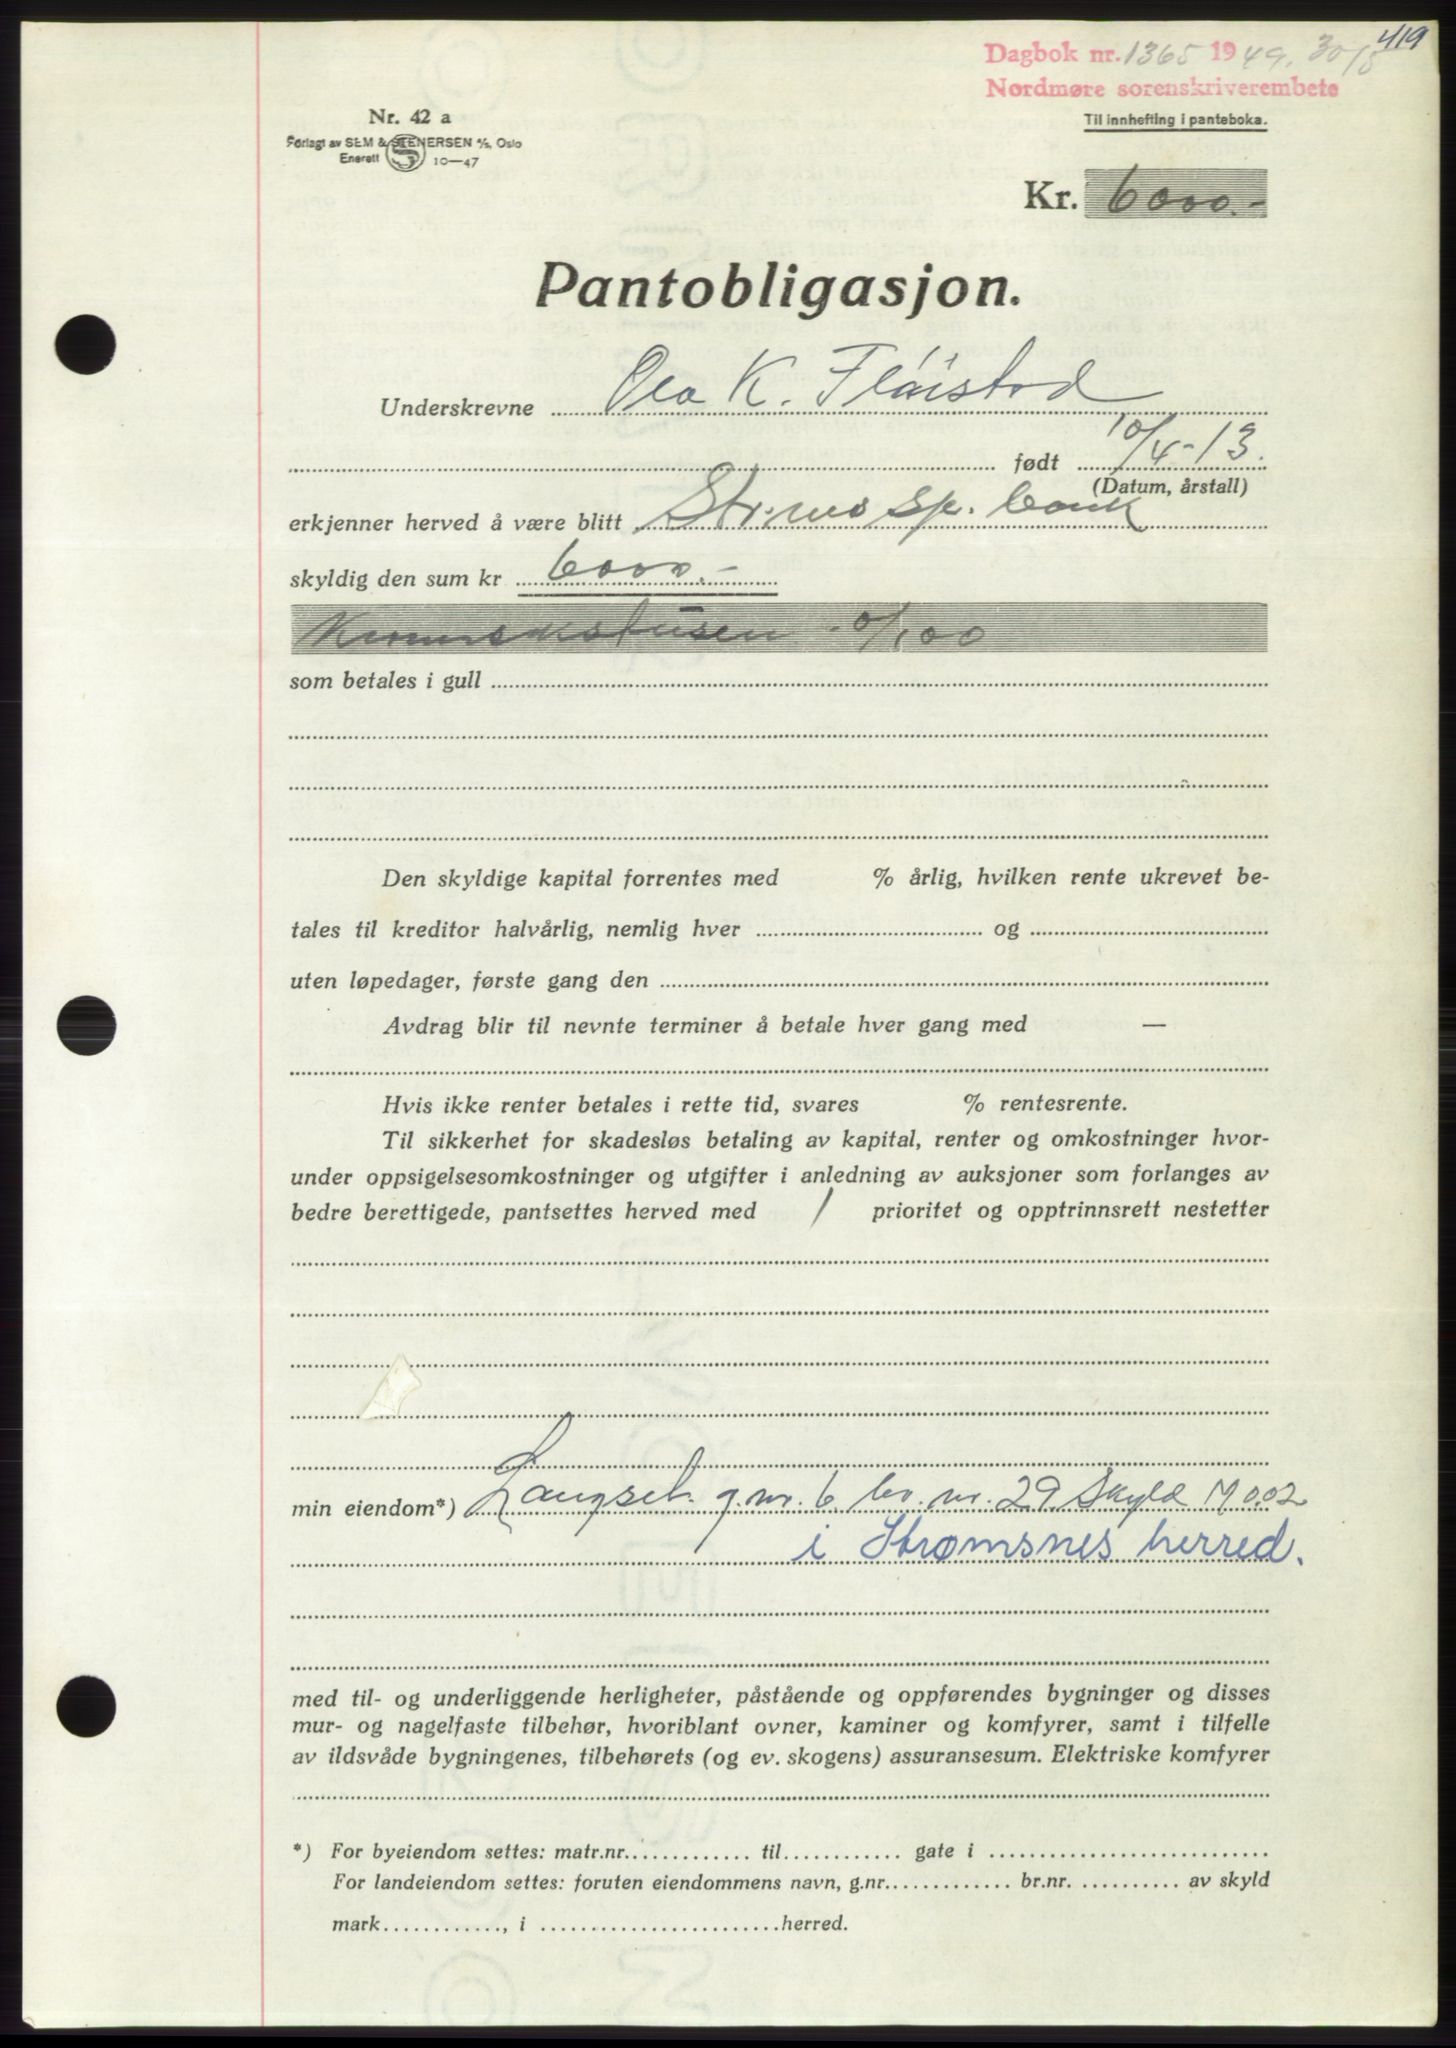 419
Dagbok nr. 1365 1949. 30/5
Nordmøre sorenskriverembete
Nr. 42 a
Forlagt av SEM & STENERSEN A/S, Oslo
Enerett S 10—47
Til innhefting i panteboka.
Kr. 6000.-
Pantobligasjon.
Underskrevne Ola K. Fløistad
født 10/4-13.
(Datum, årstall)
erkjenner herved å være blitt Str.nes sp. bank
skyldig den sum kr 6000.-
Kronersekstusen 0/100
som betales i gull
Den skyldige kapital forrentes med % årlig, hvilken rente ukrevet be-
tales til kreditor halvårlig, nemlig hver og
uten løpedager, første gang den
Avdrag blir til nevnte terminer å betale hver gang med —
Hvis ikke renter betales i rette tid, svares % rentesrente.
Til sikkerhet for skadesløs betaling av kapital, renter og omkostninger hvor-
under oppsigelsesomkostninger og utgifter i anledning av auksjoner som forlanges av
bedre berettigede, pantsettes herved med 1 prioritet og opptrinnsrett nestetter
min eiendom*) Langset g.nr. 6 br. nr. 29 Skyld M 0.02
i Strømsnes herred.
med til- og underliggende herligheter, påstående og oppførendes bygninger og disses
mur- og nagelfaste tilbehør, hvoriblant ovner, kaminer og komfyrer, samt i tilfelle
av ildsvåde bygningenes, tilbehørets (og ev. skogens) assuransesum. Elektriske komfyrer
*) For byeiendom settes: matr.nr. til gate i
For landeiendom settes: foruten eiendommens navn, g.nr. br.nr. av skyld
mark , i herred.